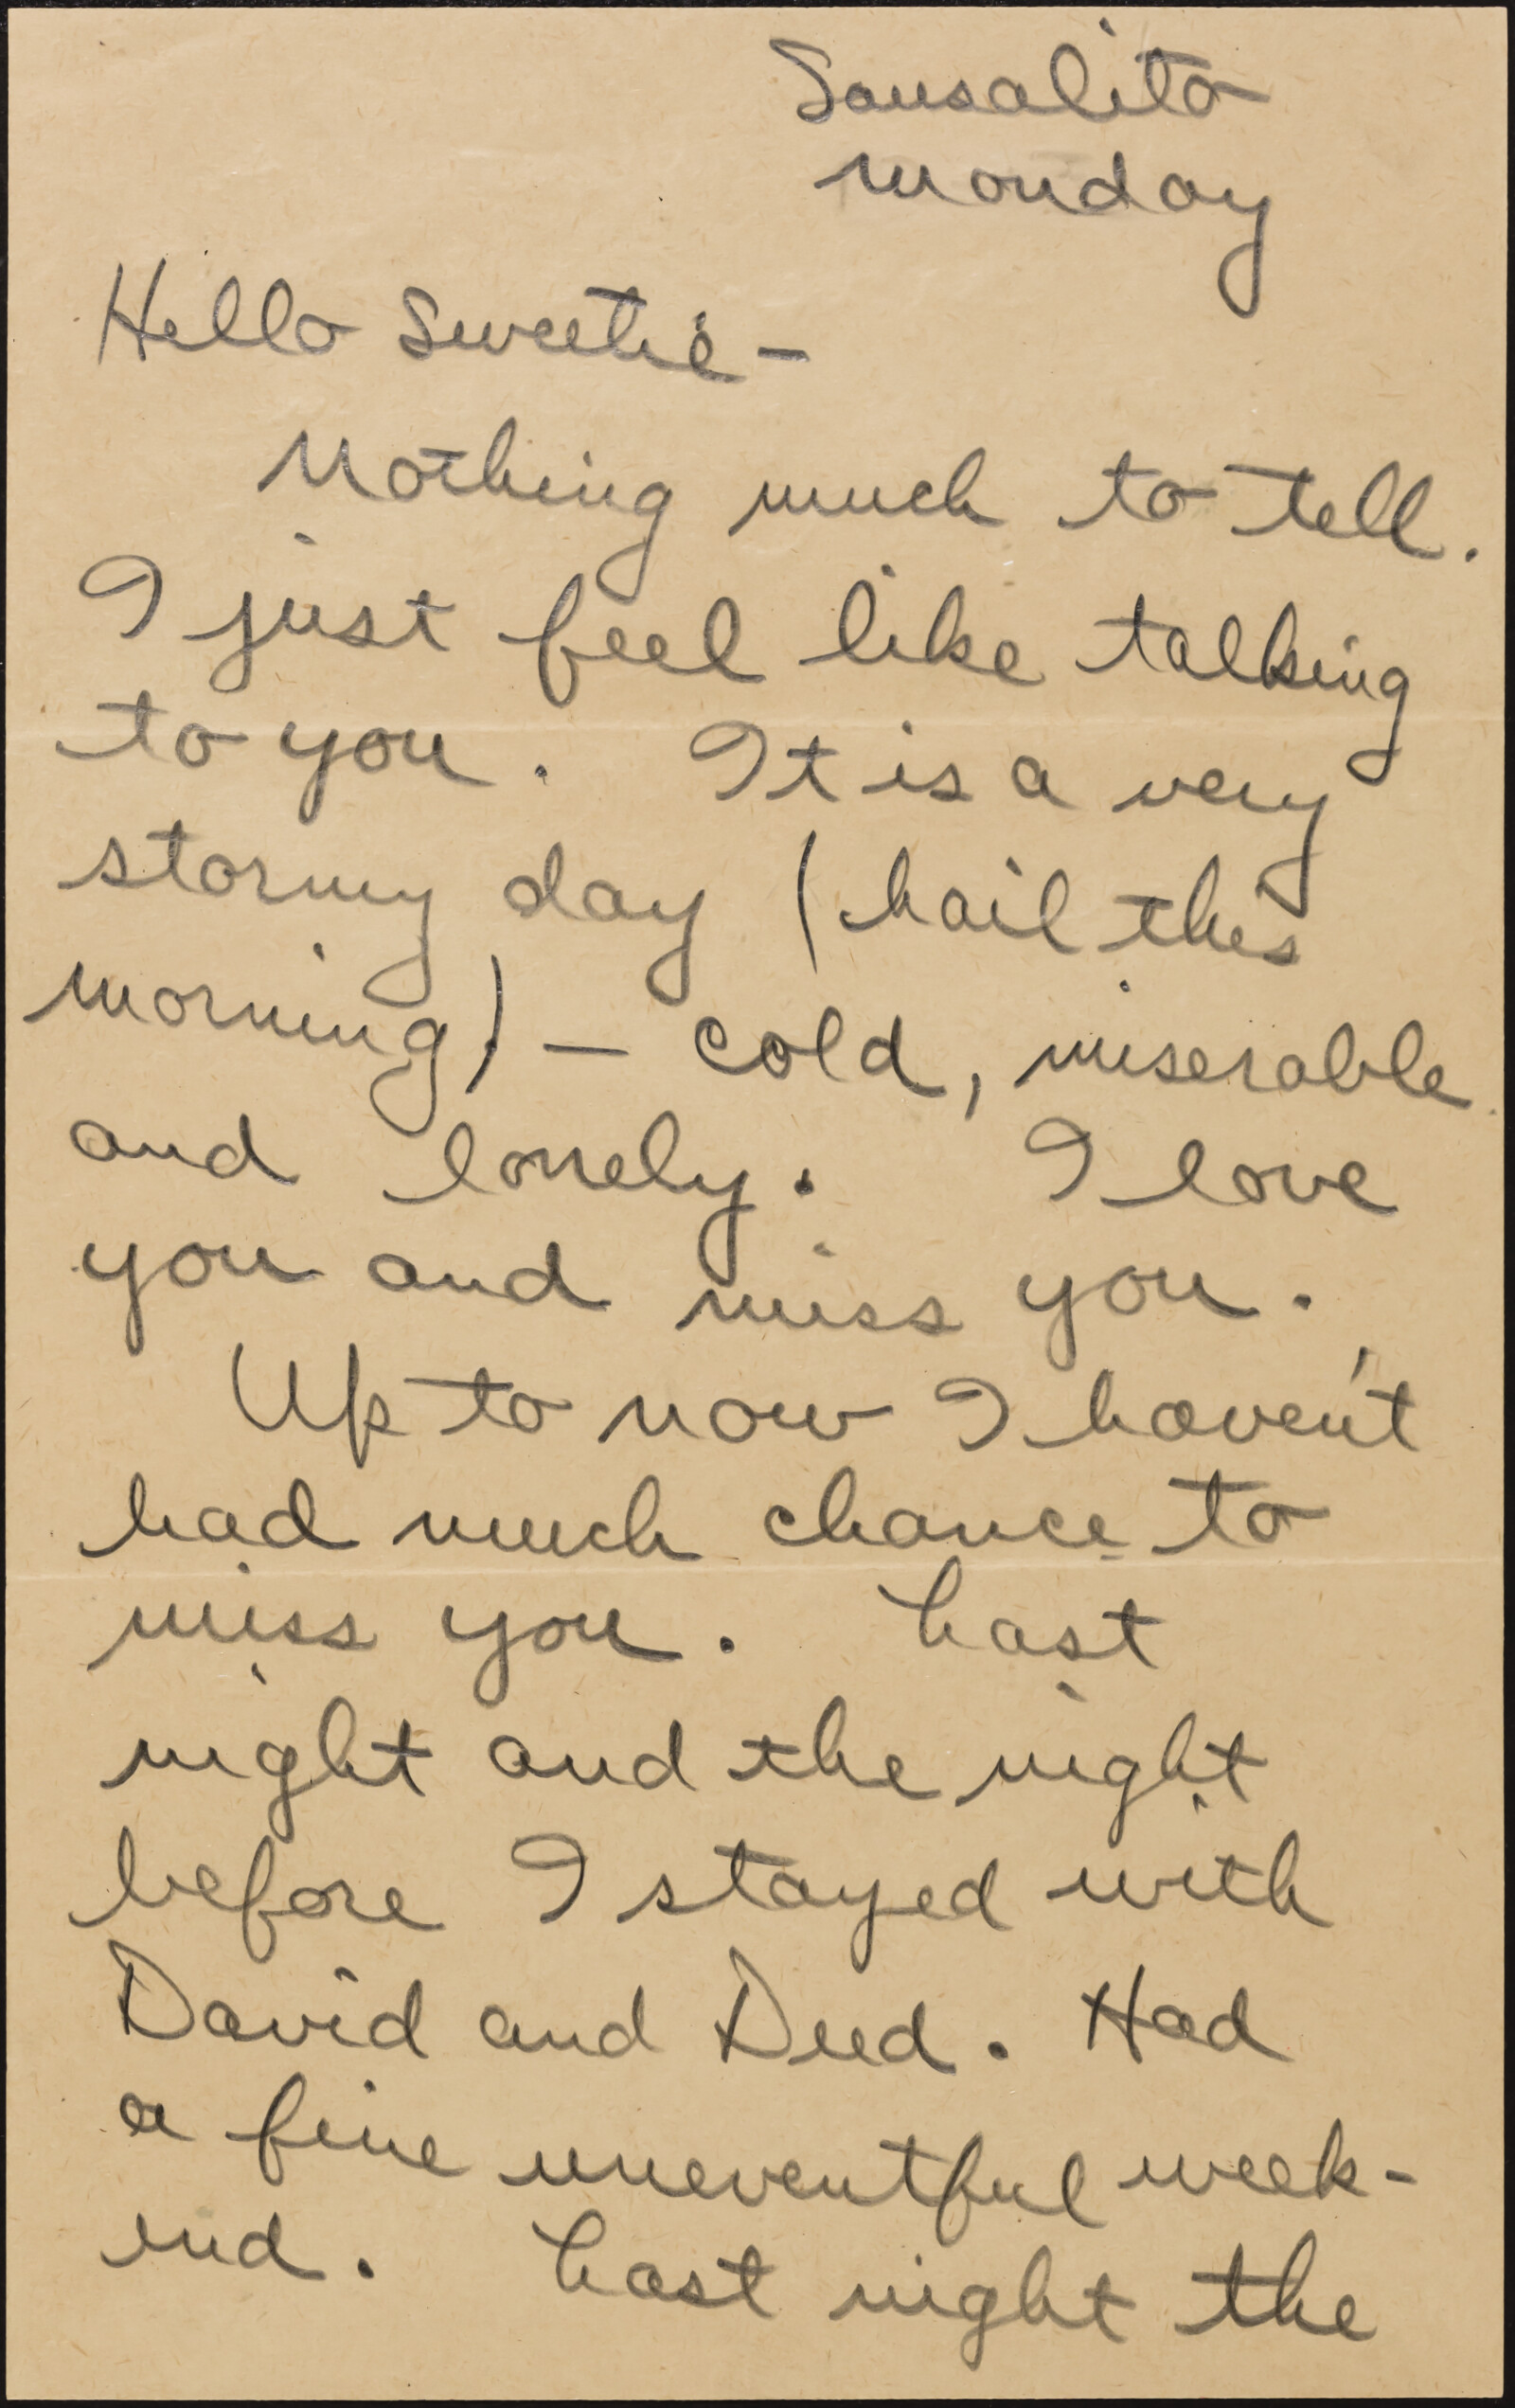 Sausalito
Monday
Hello Sweetie -
Nothing much to tell.
I just feel like talking
to you. It is a very
stormy day (hail this
morning) - cold, miserable
and lonely. I love
you and miss you.
Up to now I haven't
had much chance to
miss you. Last
night and the night
before I stayed with
David and Deed. Had
a fine uneventful week-
end. Last night the